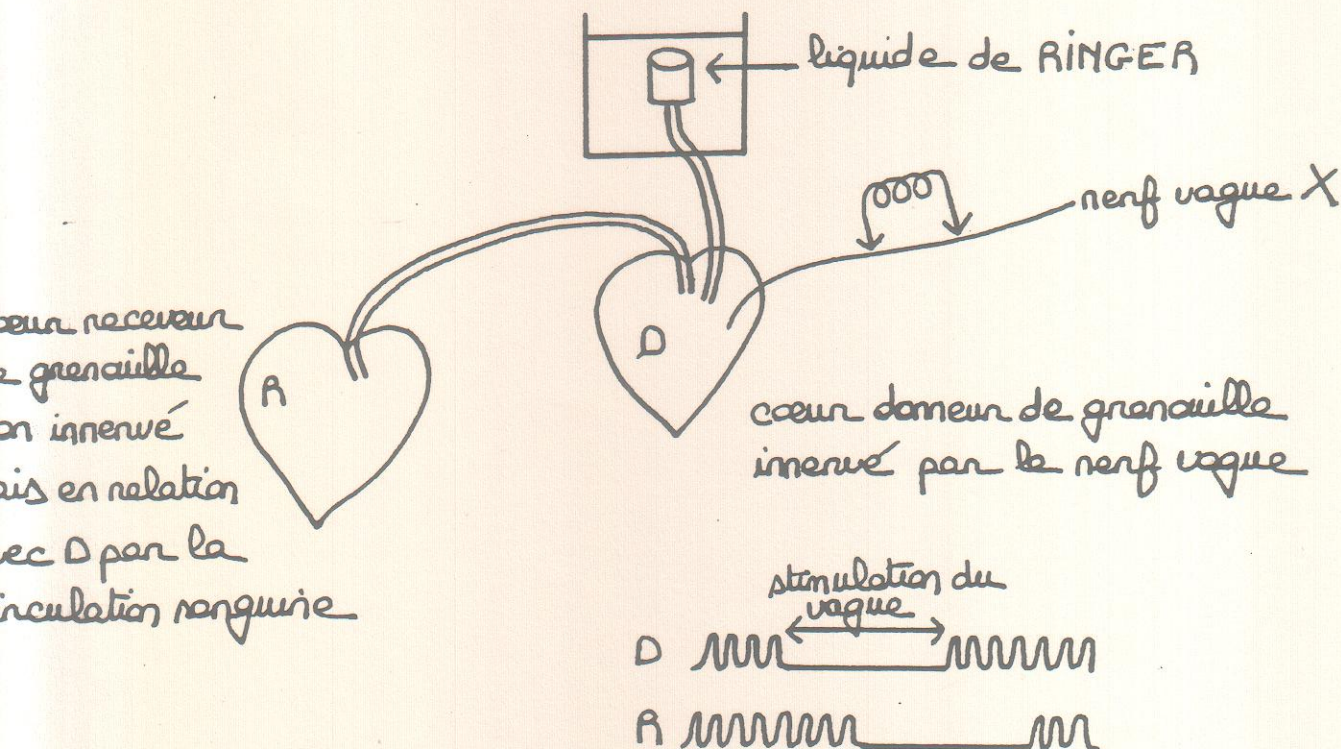 liquide de RINGER
nerf vague X
D
R
receveur
grenouille
innervé
en relation
D par la
circulation sanguine
coeur donneur de grenouille
innervé par le nerf vague
stimulation du
vague
D
R